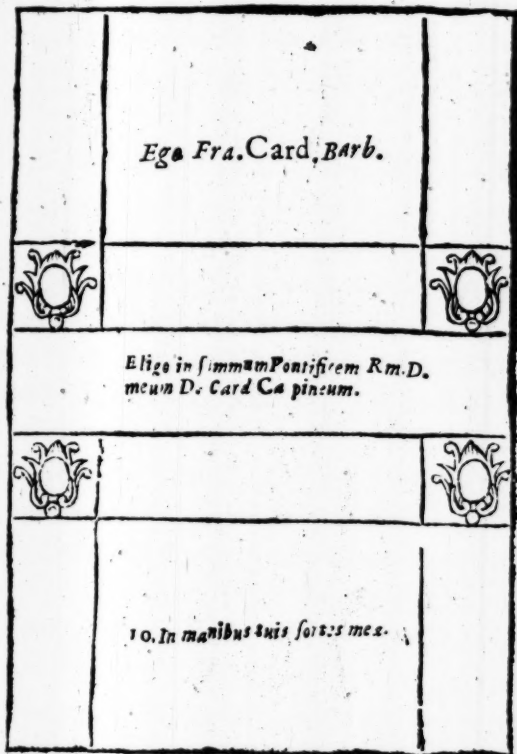 Ego Fra. Card. Barb.
Eligo in summum Pontificem Rm. D.
meum D. Card Ca pineum.
10. In manibus tuis sortes meæ.